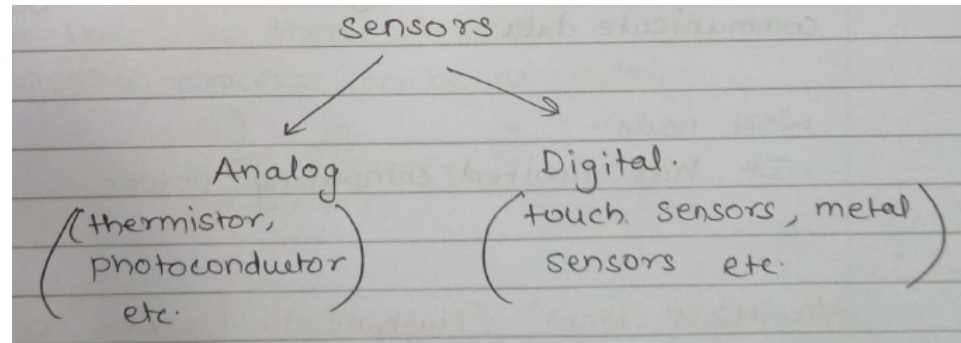 sensors
Analog
Digital.
(thermistor,
photoconductor
etc.)
(touch sensors, metal
sensors etc.)